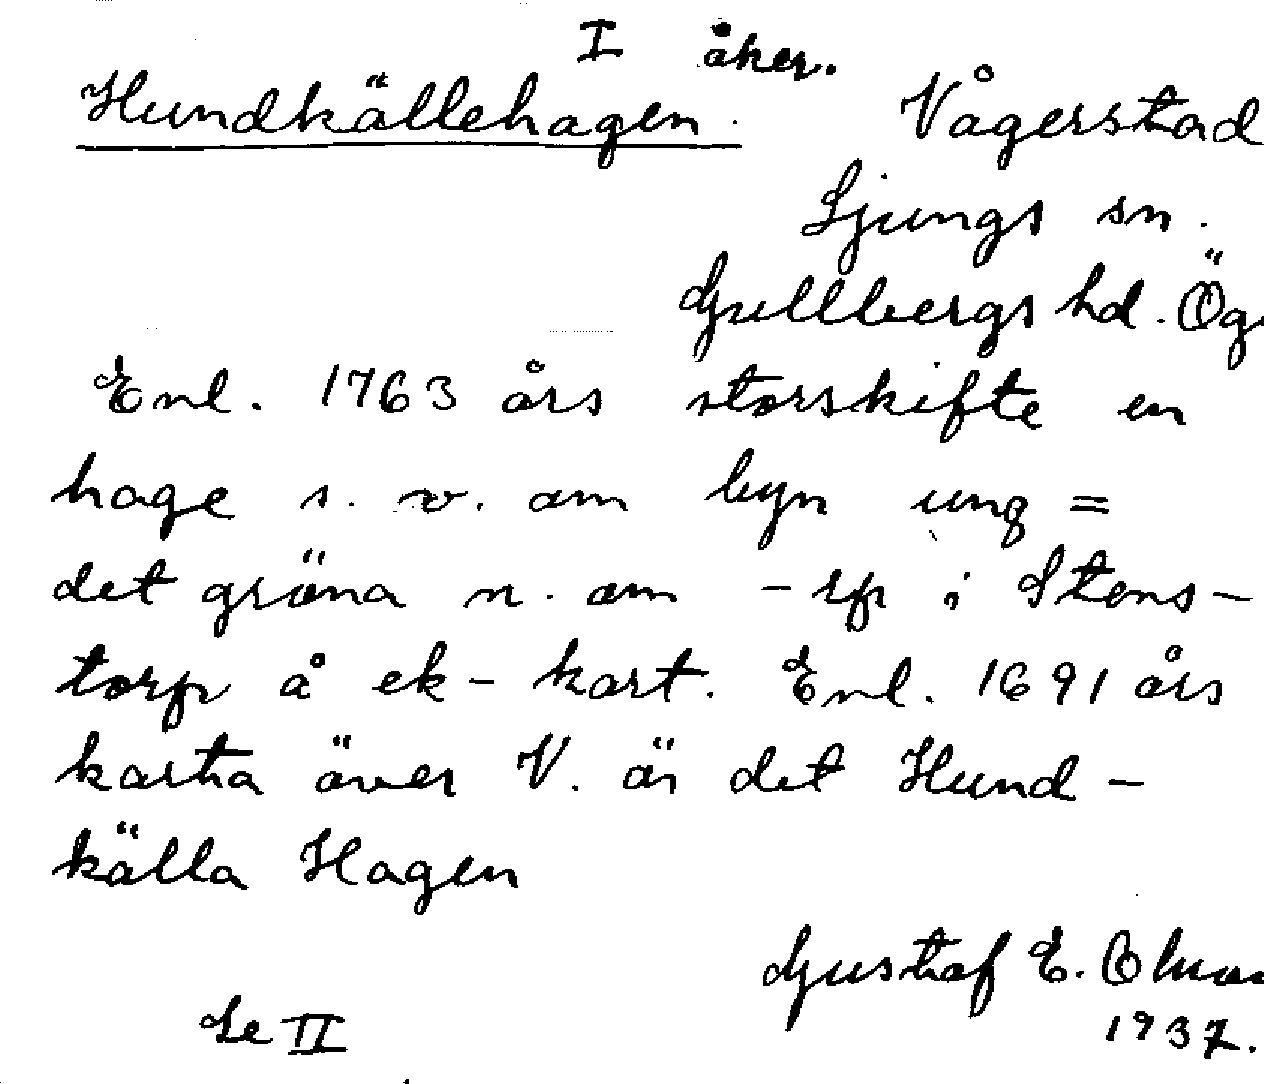 I åker.
Hundkällehagen. Vågerstad
Ljungs sn.
Gullbergs hd. Ög
Enl. 1763 års storskifte en
hage s. v. om byn ung =
det gröna n. om - rp i Stens-
torp å ek - kart. Enl. 1691 års
karta över V. är det Hund-
källa Hagen
Gustaf E.
Se II 1937.